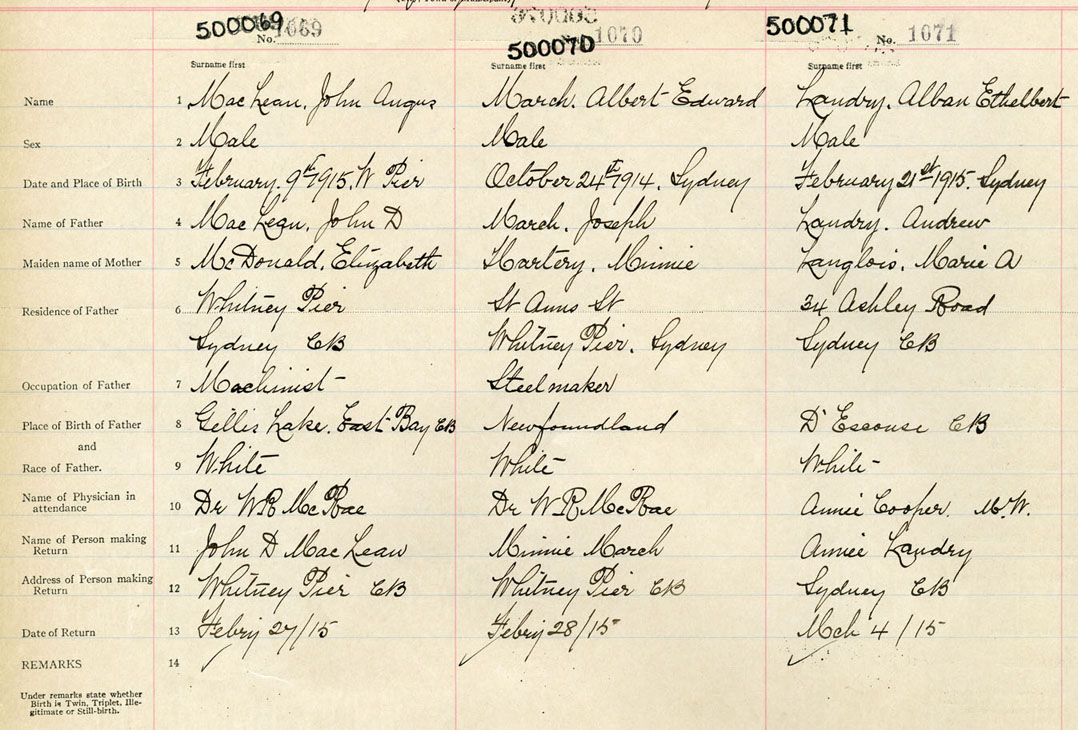 500069 No. 1069 500070 No. 1070 500071 No. 1071
Surname first Surname first Surname first
Name 1 MacLean, John Angus March. Albert Edward Landry. Alban Ethelbert
Sex 2 Male Male Male
Date and Place of Birth 3 February. 9th 1915. W Pier October 24th 1914. Sydney February 21st 1915. Sydney
Name of Father 4 MacLean, John D March. Joseph Landry. Andrew
Maiden name of Mother 5 McDonald. Elizabeth Hartery. Minnie Langlois. Marie A
Residence of Father 6 Whitney Pier St Anns St 34 Ashley Road
Sydney CB Whitney Pier. Sydney Sydney CB
Occupation of Father 7 Machinist Steelmaker
Place of Birth of Father 8 Gillis Lake. East Bay CB Newfoundland D'Escouse CB
and
Race of Father. 9 White White White
Name of Physician in
attendance 10 Dr WR McRae Dr W R McRae Annie Cooper. M.W.
Name of Person making
Return 11 John D MacLean Minnie March Annie Landry
Address of Person making
Return 12 Whitney Pier CB Whitney Pier CB Sydney CB
Date of Return 13 Febry 27/15 Febry 28/15 Mch 4/15
REMARKS 14
Under remarks state whether
Birth is Twin, Triplet, Ille-
gitimate or Still-birth.